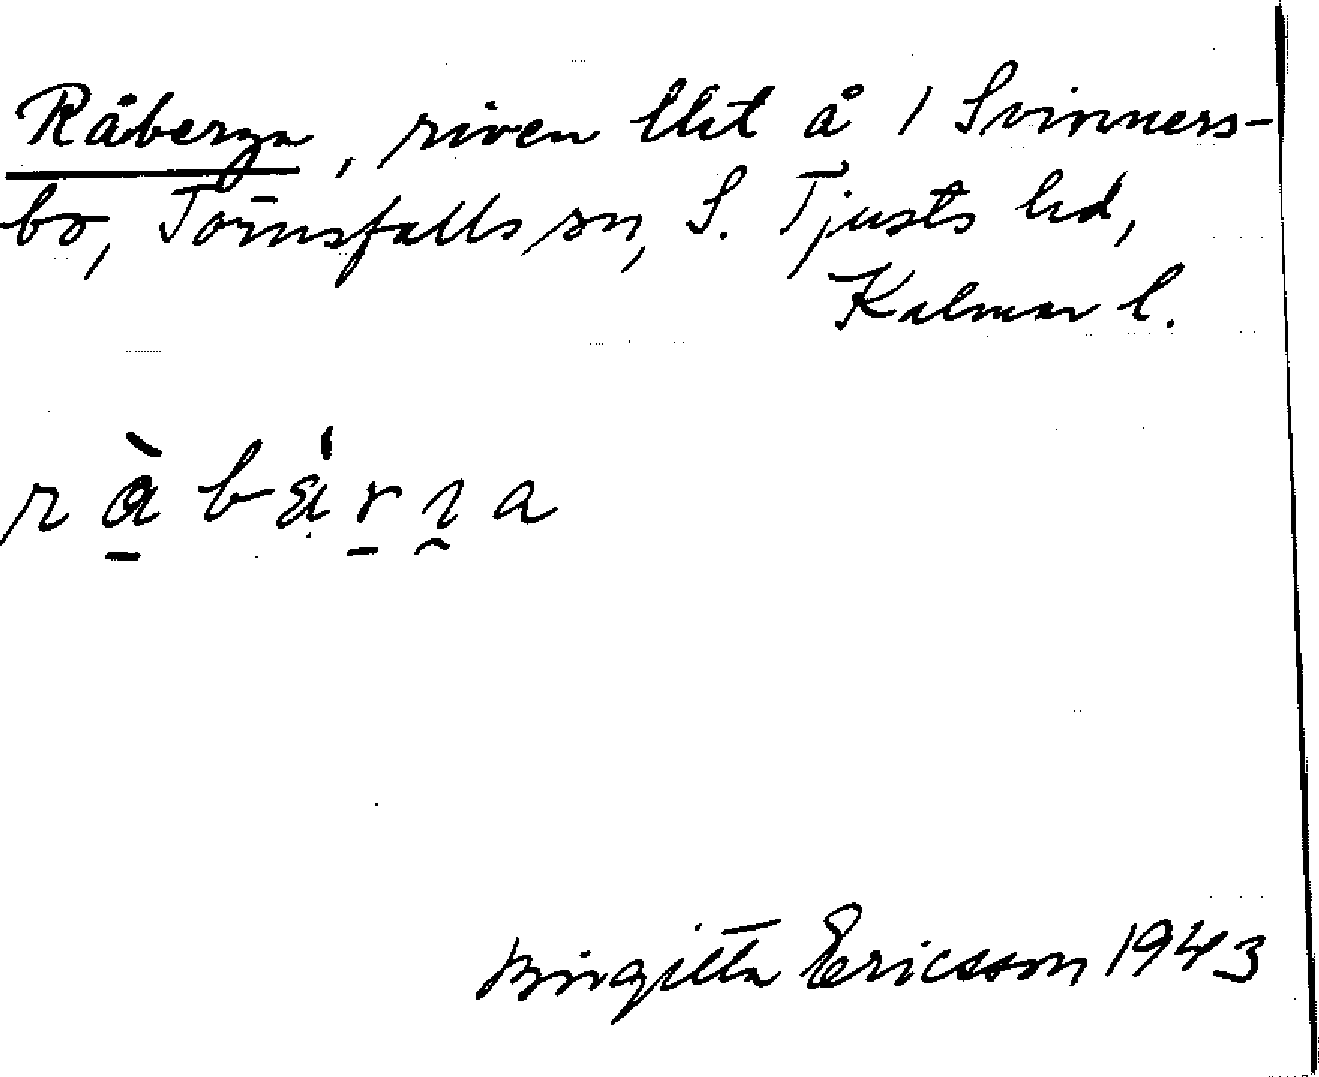 Råberga, riven lht å 1 Svinners-
bo, Törnsfalls sn, S. Tjusts hd,
Kalmar l.
Birgitta Ericsson 1943